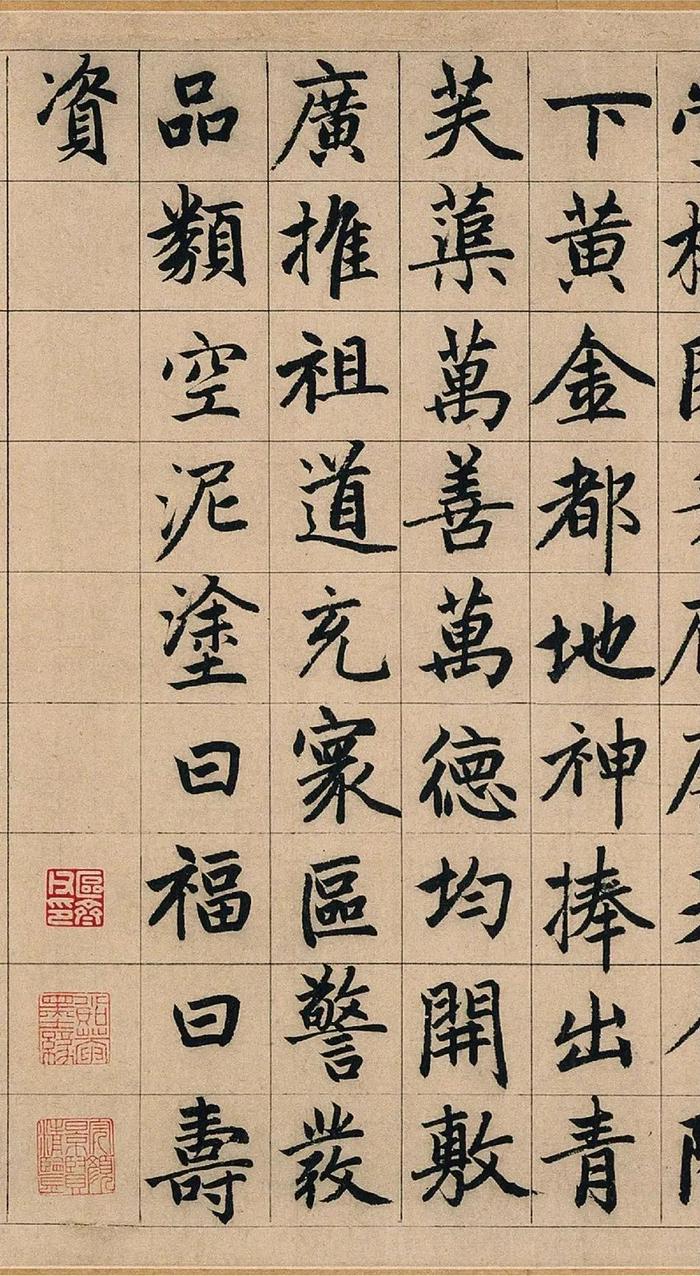 下黄金都地神捧出青
芙蕖萬善萬徳均開敷
廣推祖道充寰區警發
品類空泥塗曰福曰壽
資